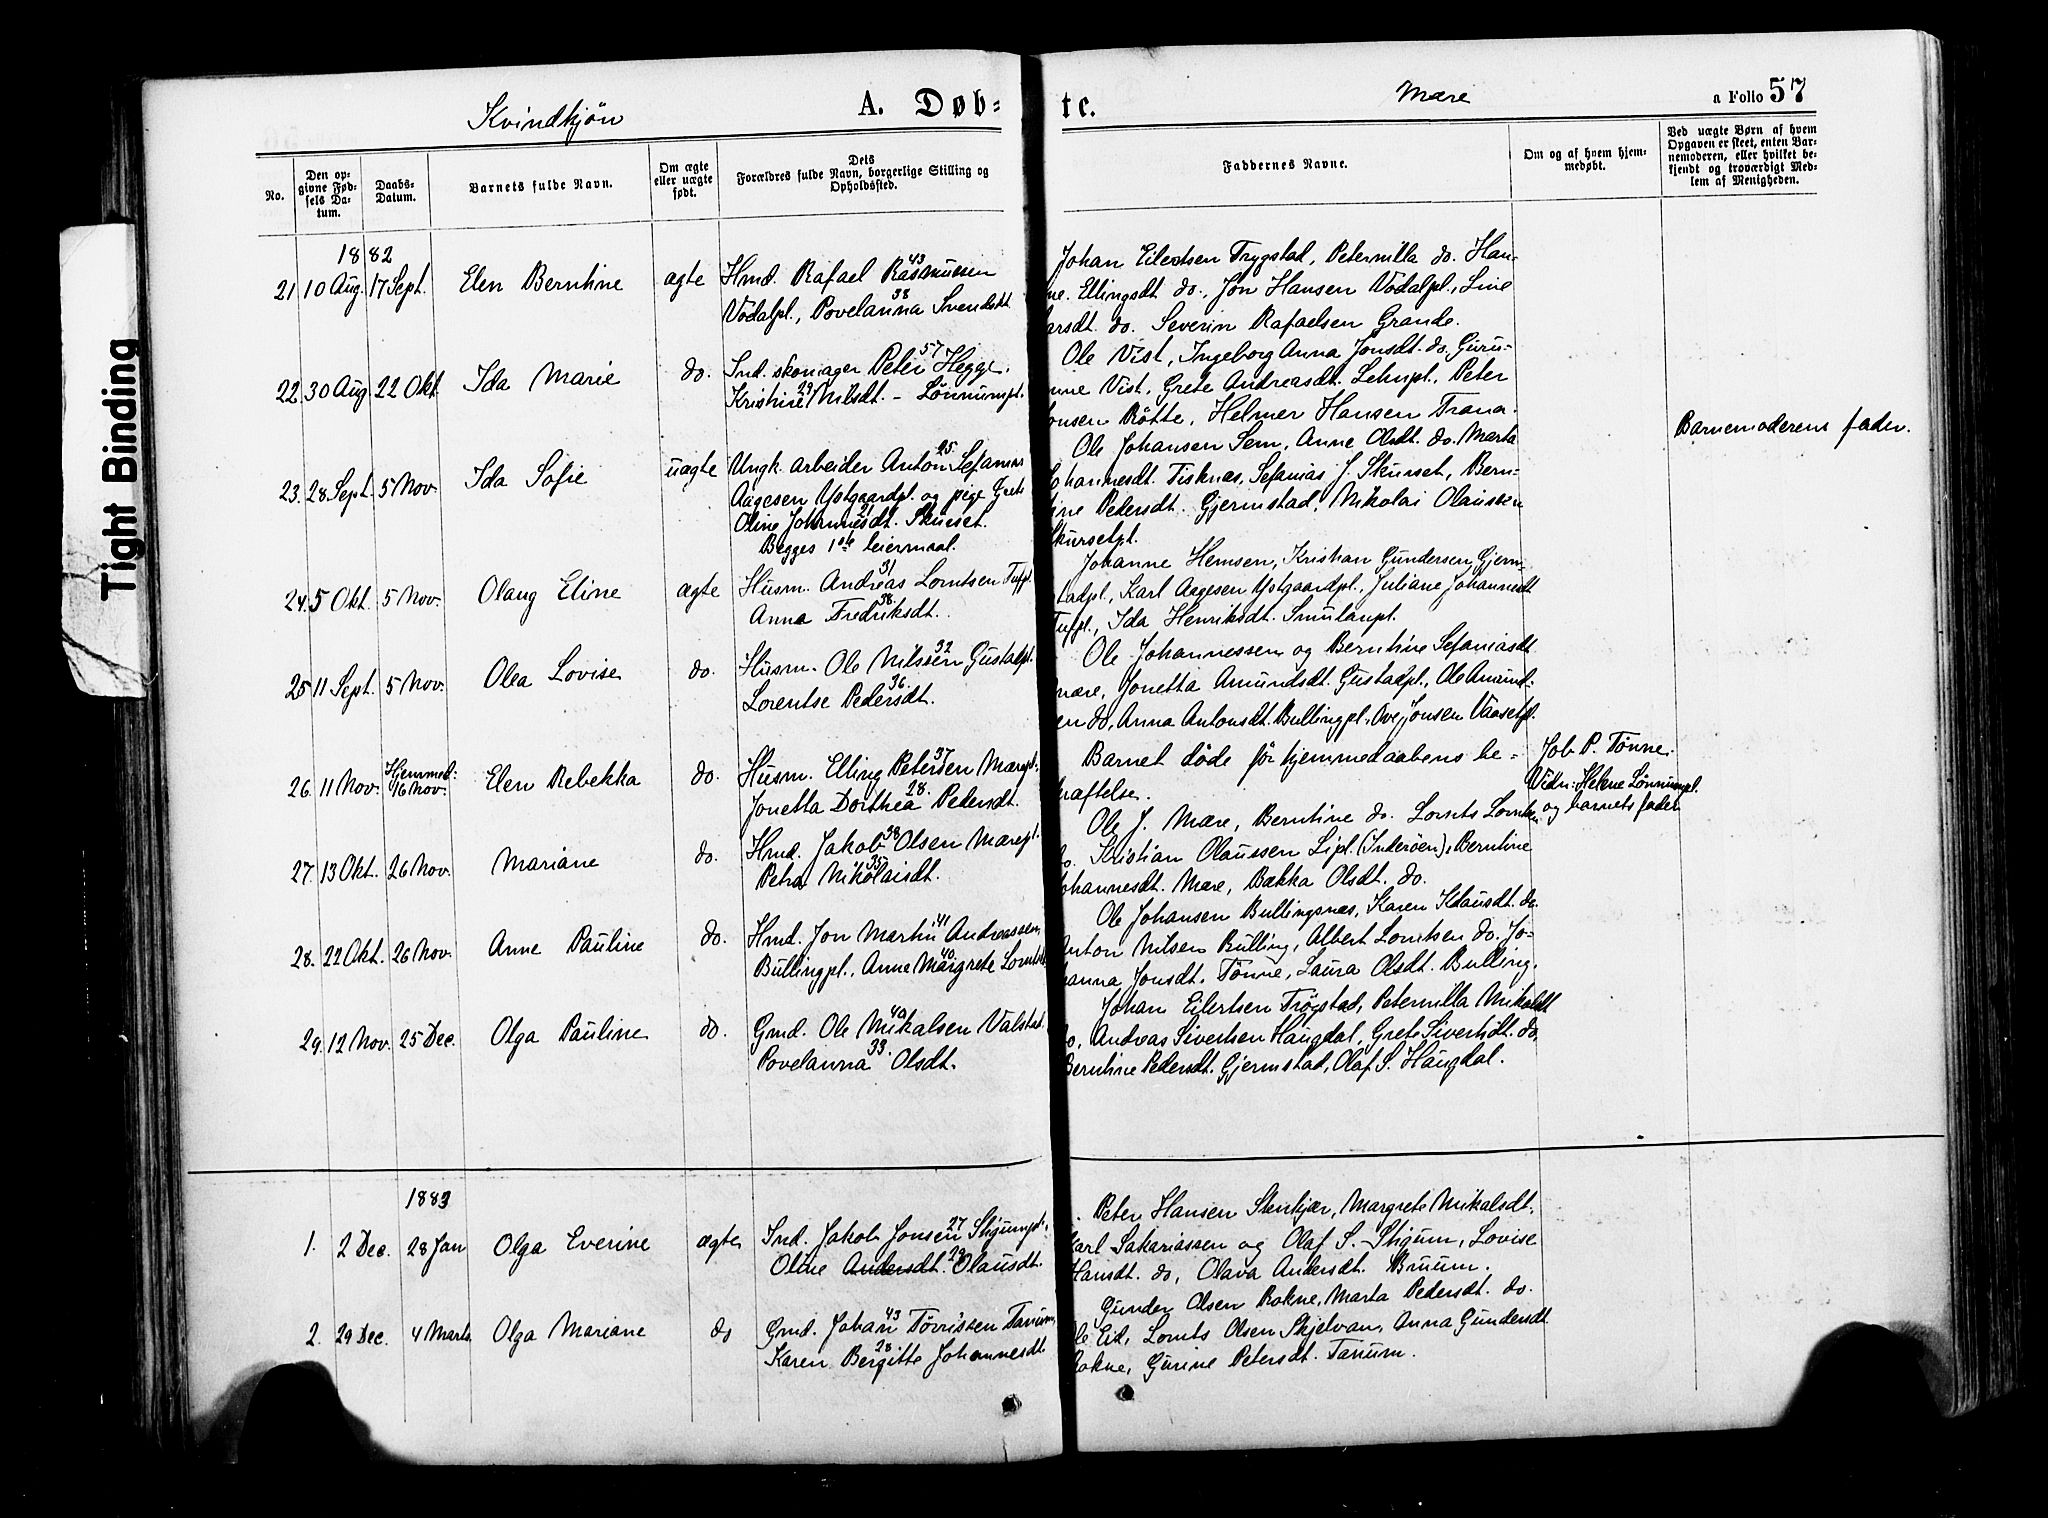 Tight Binding
Kvindkjön
A. Døb=
te.
Mære
a Folio 57
No.
Den op-
givne Fød-
sels Da-
tum.
Daabs-
Datum.
Barnets fulde Navn.
Om ægte
eller uægte
født.
Dets
Forældres fulde Navn, borgerlige Stilling og
Opholdssted.
Faddernes Navne.
Om og af hvem hjem-
medøbt.
Ved uægte Børn af hvem
Opgaven er skeet, enten Bar-
nemoderen, eller hvilket be-
kjendt og troværdigt Med-
lem af Menigheden.
1882
21 10 Aug. 17 Sept. Elen Berntine ægte Hmd. Rafael Rasmussen 43
Vodalpl., Povelanna Svendsdt. 38
Johan Eilertsen Trygstad, Peternilla do. Han-
ne. Ellingsdt do., Jon Hansen Vodalpl., Line
Larsdt. do. Severin Rafaelsen Grande.
22. 30 Aug. 22 Okt. Ida Marie do. Ind. skomager Peter Hegge. 57
Kristine Nilsdt. - Lönnumpl. 29
Ole Vist, Ingeborg Anna Jonsdt. do. Guru-
nne Vist, Grete Andreasdt. Lehnpl., Peter
onsen Råtte, Helmer Hansen Trana.
23. 28 Sept. 5 Nov. Ida Sofie uægte Ungk. arbeider Anton Sefanias 25.
Aagesen Ystgaardpl. og pige Grete
Oline Johannesdt. Skurset. 21
Begges 1ste leiermaal.
Ole Johansen Sem, Anne Olsdt. do. Marta
Johannesdt. Tisknæs, Sefanias J. Skurset, Bern-
tine Pedersdt. Gjermstad, Nikolai Olaussen
Skursetpl.
Barnemoderens fader.
24. 5 Okt. 5 Nov. Olaug Eline ægte Husm. Andreas Lorntsen Tufpl. 31
Anna Fredriksdt. 38.
Johanne Hemsen, Kristian Gundersen Gjerm-
stadpl., Karl Aagesen Ystgaardpl., Juliane Johannesdt
Tufpl., Ida Henriksdt. Smulanpl.
25 11 Sept. 5 Nov. Olea Lovise do. Husm. Ole Nilssen Gustadpl. 32
Lorentse Pedersdt. 36.
Ole Johannessen og Berntine Sefaniasdt.
mære, Jonetta Amundsdt. Gustadpl., Ole Amund-
en do, Anna Antonsdt. Bullingpl., Ove Jonsen Vaasetpl.
26. 11 Nov. Hjemmed: 16 Nov. Elen Rebekka do. Husm. Elling Petersen Mærepl. 37
Jonetta Dorthea Pedersdt. 28.
Barnet døde før hjemmedaabens be-
kræftelse.
Job P. Tønne.
Vidn: Helene Lønnumpl.
og barnets fader
27. 13 Okt. 26 Nov. Mariane do. Hmd. Jakob Olsen Mærepl. 38
Petra Nikolaisdt. 35
Ole J. Mære, Berntine do. Lornts Lorntsen
do. Kristian Olaussen Lipl. (Inderöen), Berntine
Johannesdt. Mære, Bækka Olsdt. do.
28. 22 Okt. 26 Nov. Anne Pauline do. Hmd. Jon Martin Andreassen 41
Bullingpl., Anne Margrete Lorntsdt. 40
Ole Johansen Bullingsnæs, Karen Klausdt. do.
Anton Nilsen Bulling, Albert Lorntsen do. Jo-
hanna Jonsdt. Tønne, Laura Olsdt. Bulling.
29. 12 Nov. 25 Dec. Olga Pauline do. Gmd. Ole Mikalsen Valstad. 40
Povelanna Olsdt. 33.
Johan Eilertsen Trøgstad, Peternilla Mikalsdt
do, Andreas Sivertsen Haugdal, Grete Sivertsdt. do.
Berntine Pedersdt. Gjermstad, Olaf S. Haugdal.
1883
1. 2 Dec. 28 Jan Olga Everine ægte Ind. Jakob Jonsen Stigumpl. 27
Oline Andersdt. Olausdt. 29
Peter Hansen Stenkjær, Margrete Mikalsdt.
Karl Sakariassen og Olaf S. Stigum, Lovise
Hansdt. do, Olava Andersdt. Bruum.
2. 29 Dec. 4 Marts Olga Mariane do Gmd. Johan Tövrissen Tanum, 43
Karen Bergitte Johannesdt. 28
Gunder Olsen Rokne, Marta Pedersdt. do.
Ole Eid, Lornts Olsen Skjelvan, Anna Gundersdt
Rokne, Gurine Petersdt. Tanum.